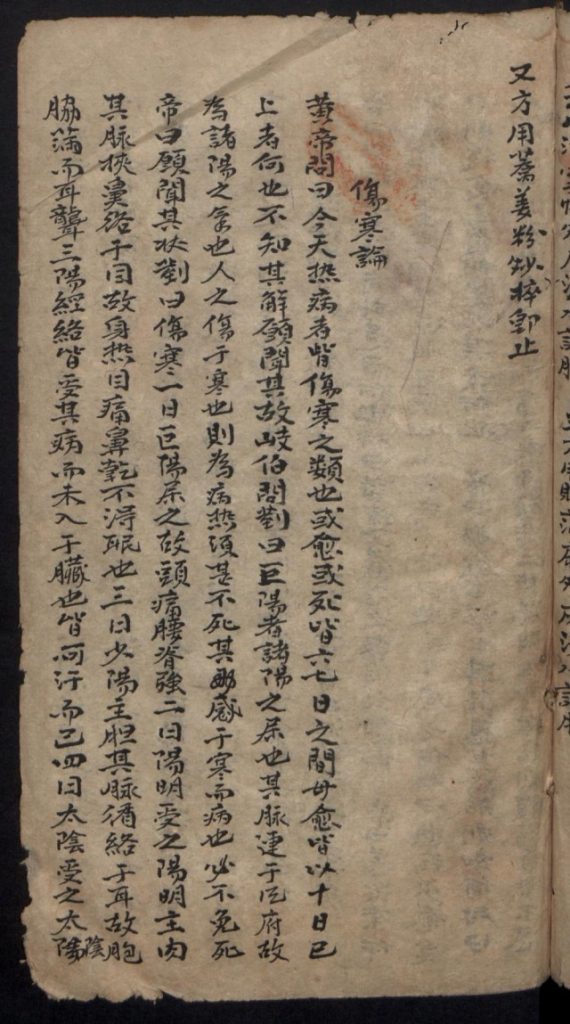 又方用蕎姜粉炒搾郵止
傷寒論
黃帝問曰今天热病者皆傷寒之類也或愈或死皆六七日之間毋愈皆以十日已
上者何也不知其解願聞其故岐伯問對曰巨陽者諸陽之屬也其脉連于風府故
為諸陽之氣也人之傷于寒也則為病热須甚不死其两感于寒而病也必不免死
帝曰願聞其状對曰傷寒一日巨陽受之故頭痛腰脊強二日陽明受之陽明主肉
其脉挾鼻絡于目故身热目痛鼻乾不淂眠也三日少陽主胆其脉循絡于耳故胞
脇滿而耳聾三陽經絡皆受其病而未入于臓也皆可汗而已四日太陰受之太陽陰